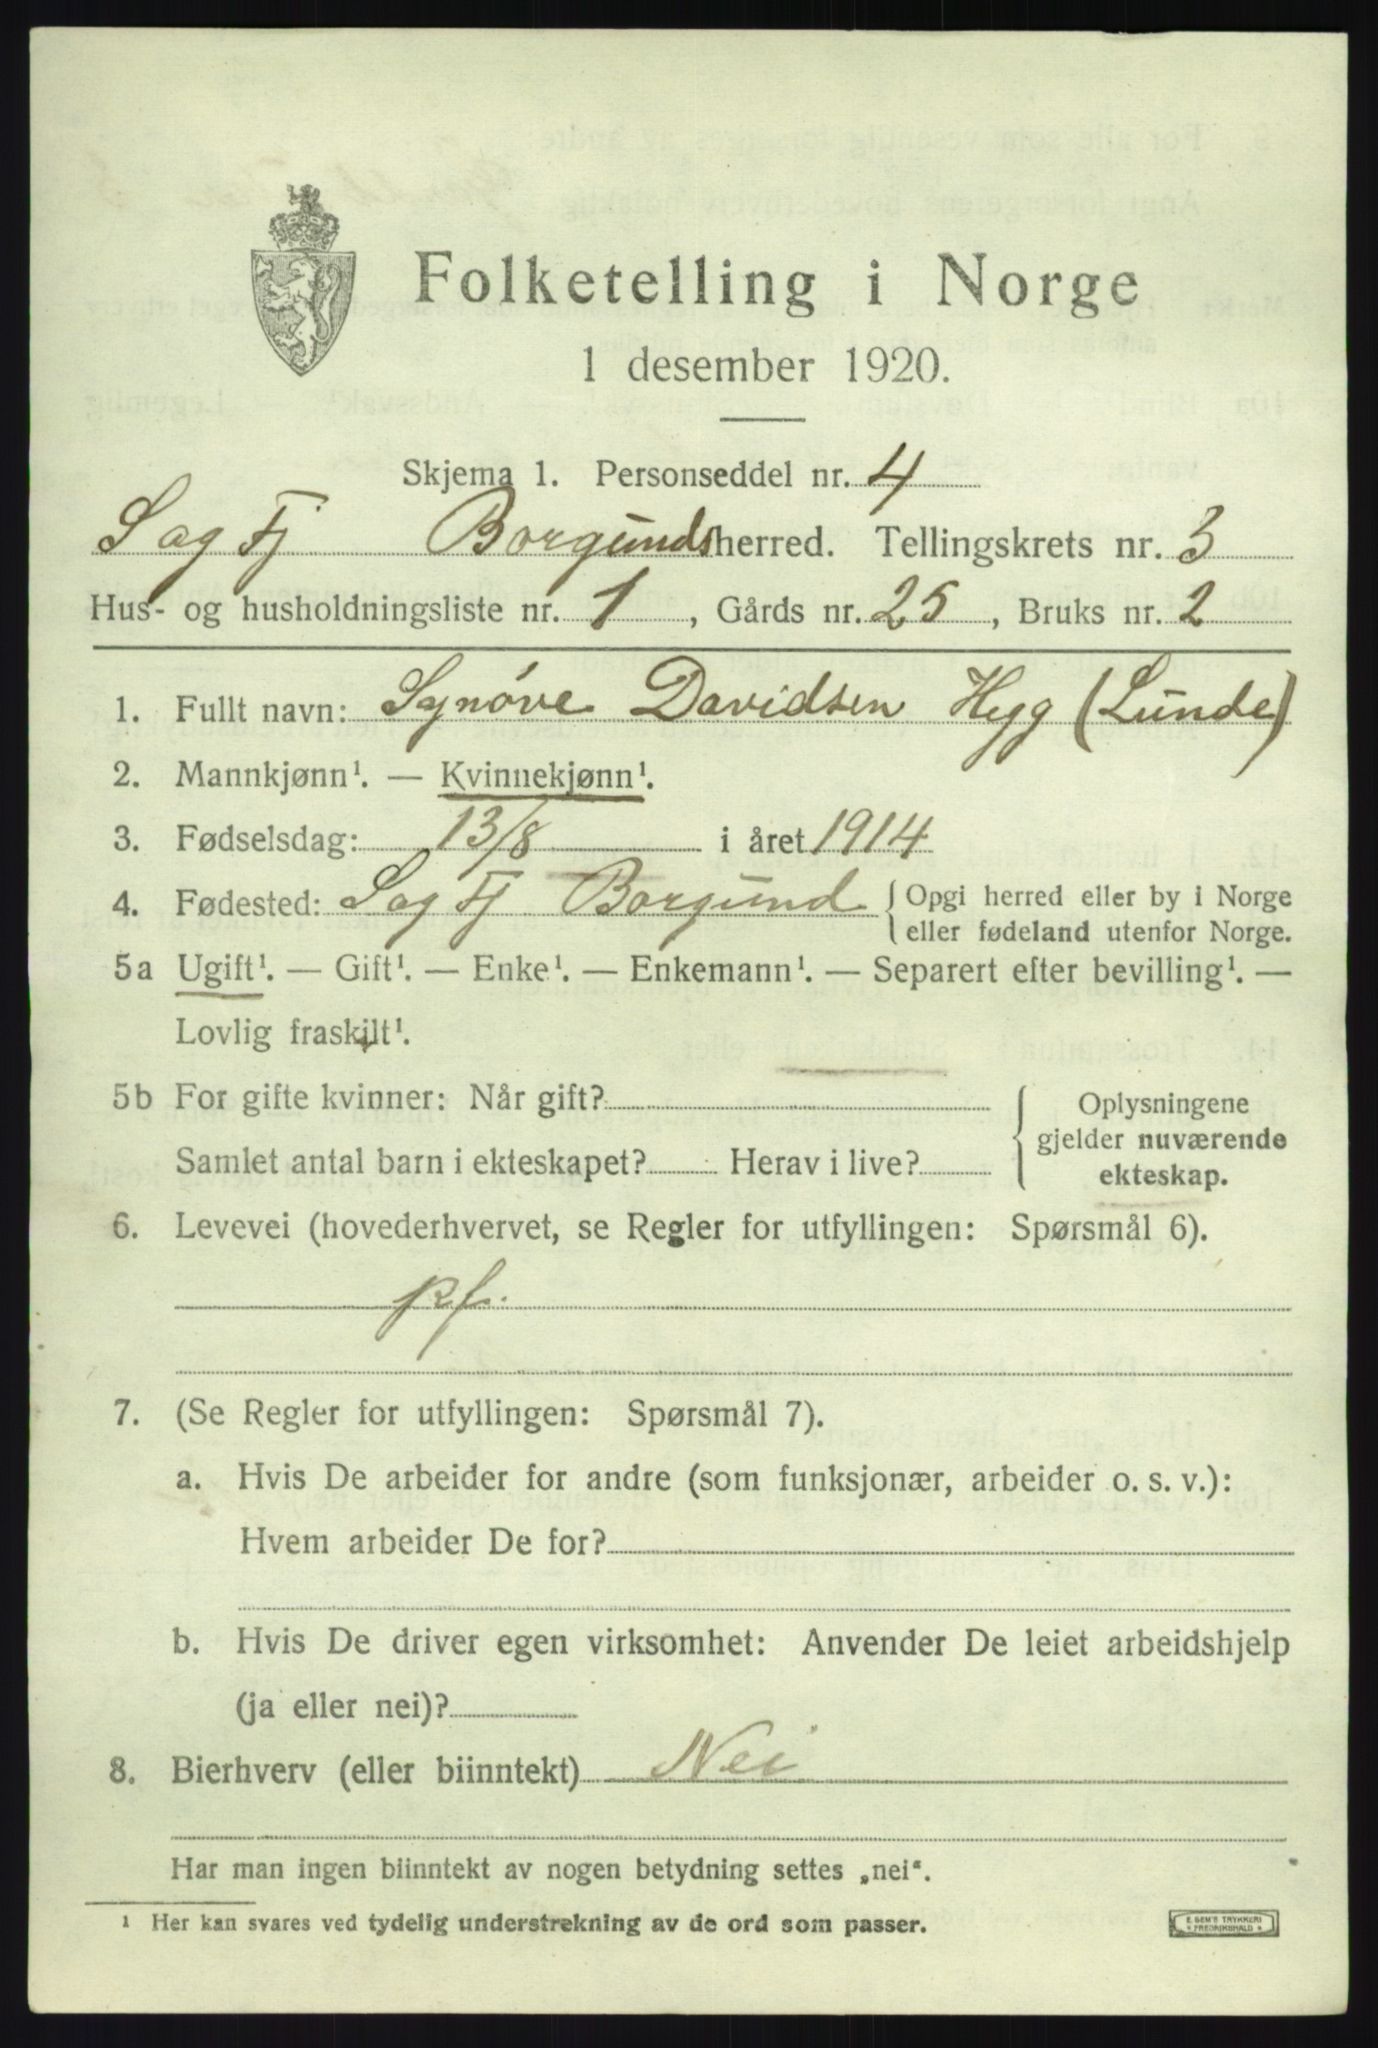 Folketelling i Norge
1 desember 1920.
Skjema 1. Personseddel nr. 4
Sag Fj Borgunds herred. Tellingskrets nr. 3
Hus- og husholdningsliste nr. 1, Gårds nr. 25, Bruks nr. 2
1. Fullt navn: Synöve Davidsen Hyg (Lunde)
2. Mannkjønn¹. — Kvinnekjønn¹.
3. Fødselsdag: 13/8 i året 1914
4. Fødested: Sag Fj Borgund { Opgi herred eller by i Norge
eller fødeland utenfor Norge.
5a Ugift¹. — Gift¹. — Enke¹. — Enkemann¹. — Separert efter bevilling¹. —
Lovlig fraskilt¹.
5b For gifte kvinner: Når gift? Oplysningene
gjelder nuværende
Samlet antal barn i ekteskapet? Herav i live? ekteskap.
6. Levevei (hovederhvervet, se Regler for utfyllingen: Spørsmål 6).
pf.
7. (Se Regler for utfyllingen: Spørsmål 7).
a. Hvis De arbeider for andre (som funksjonær, arbeider o. s. v.):
Hvem arbeider De for?
b. Hvis De driver egen virksomhet: Anvender De leiet arbeidshjelp
(ja eller nei)?
8. Bierhverv (eller biinntekt) Nei
Har man ingen biinntekt av nogen betydning settes „nei“.
¹ Her kan svares ved tydelig understrekning av de ord som passer.
E. SEM'S TRYKKERI
FREDRIKSHALD